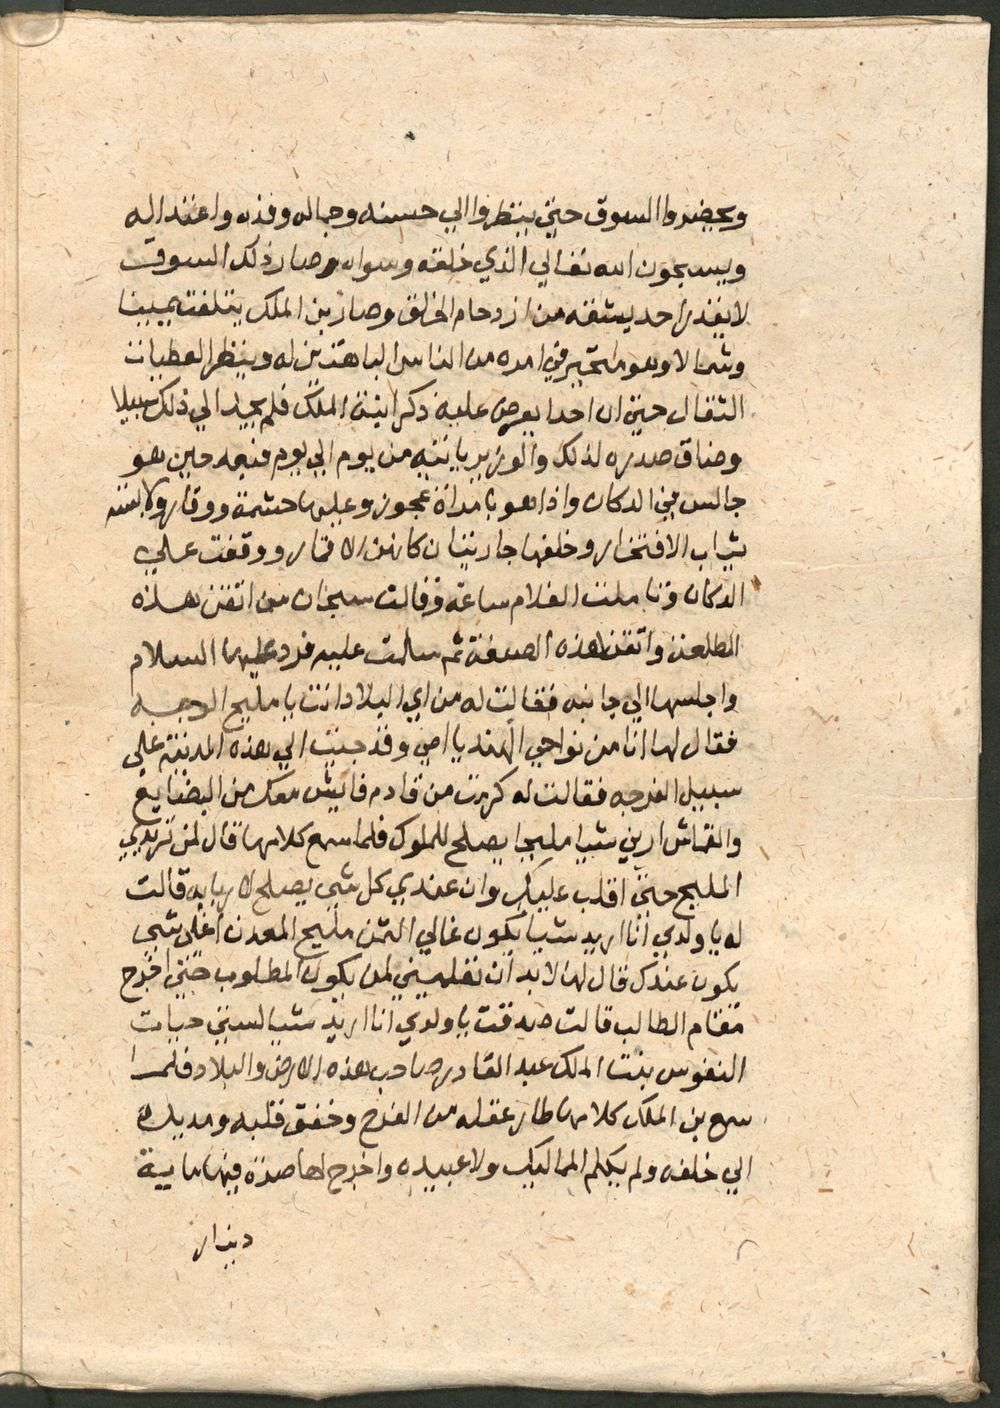 ويحضروا السوق حتي ينظروا الي حسنه وجماله وقده واعتداله
ويسبحون الله تعالي الذي خلقه وسواه وصار ذلك السوق
لا يقدر احد يشقه من ازدحام الخلق وصار بن الملك يتلفت يمينا
وشمالا وهو متحير في امره من الناس الباهتين له وينظر العطيات
الثقال حتي ان احدا يعرض عليه ذكر ابنة الملك فلم يجد الي ذلك سبيلا
وضاق صدره لذلك والوزير ياتيه من يوم الي يوم فبينه حين هو
جالس في الدكان واذا هو بامراة عجوز وعليها حشمة ووقار ولابسه
ثياب الافتخار وخلفها جاريتان كانهن الاقمار ووقفت علي
الدكان وتاملت الغلام ساعة وقالت سبحان من اتقن هذه
الطلعة واتقن هذه الصنعة ثم سلمت عليه فرد عليها السلام
واجلسها الي جانبه فقالت له من اي البلاد انت يا مليح الوجه
فقال لها انا من نواحي الهند يا امي وقد جيت الي هذه المدينة علي
سبيل الفرجه فقالت له كرمت من قادم فايش معك من البضايع
والقماش اريني شيا مليحا يصلح للملوك فلما سمع كلامها قال لمن تريدي
المليح حتي اقلب عليك وان عندي كل شي يصلح لاربابه قالت
له يا ولدي انا اريد شيا يكون غالي الثمن مليح المعدن اغلي شي
يكون عندك قال لها لا بد ان تعلميني لمن يكون المطلوب حتي اخرج
مقام الطالب قالت صدقت يا ولدي انا اريد شيا لستي حيات
النفوس بنت الملك عبد القادر صاحب هذه الارض والبلاد فلما
سمع بن الملك كلامها طار عقله من الفرح وخفق قلبه ومد يده
الي خلفه ولم يكلم المماليك ولا عبيده واخرج لها صرة فيها ماية
دينار